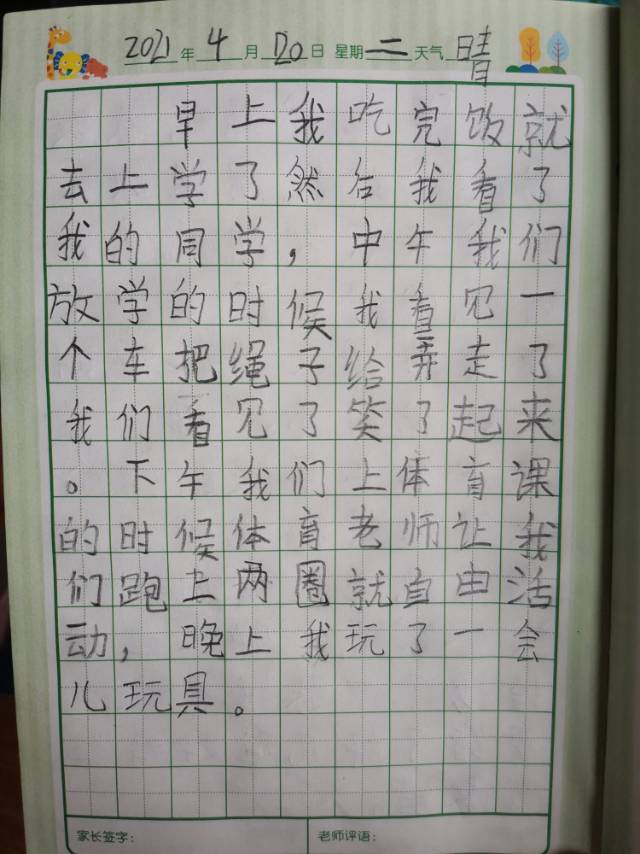 2021年4月20日 星期二 天气晴
早上我吃完饭就
去上学了然后我看了
我的同学，中午我们
放学的时候我看见一
个车把绳子给弄走了
我们看见了笑了起来
。下午我们上体育课
的时候体育老师让我
们跑上两圈就自由活
动，晚上我玩了一会
儿玩具。
家长签字： 老师评语：